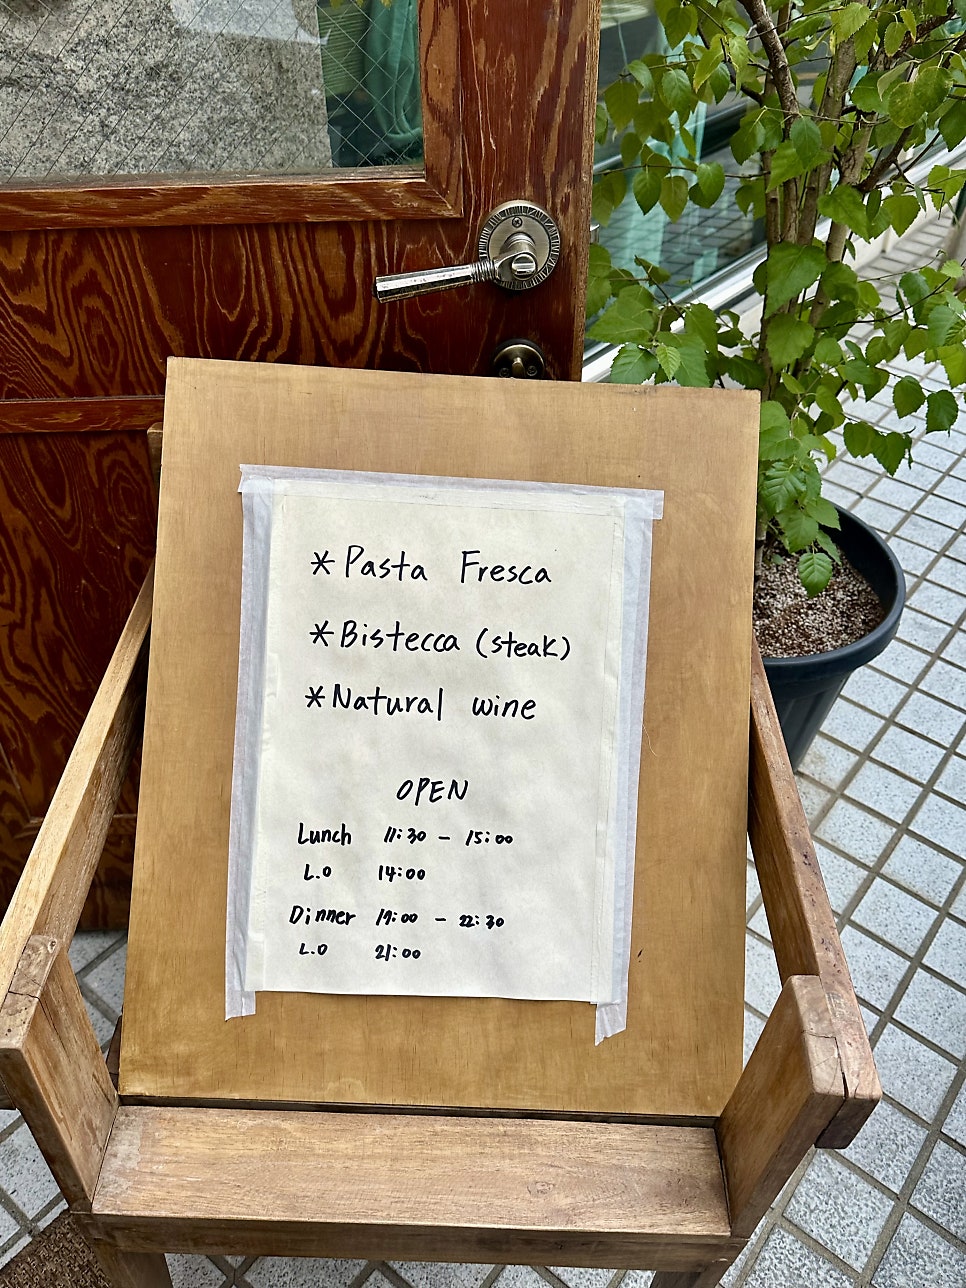 *Pasta Fresca
*Bistecca (steak)
*Natural wine
OPEN
Lunch 11:30 - 15:00
L.O 14:00
Dinner - 22:30
L.O 21:00